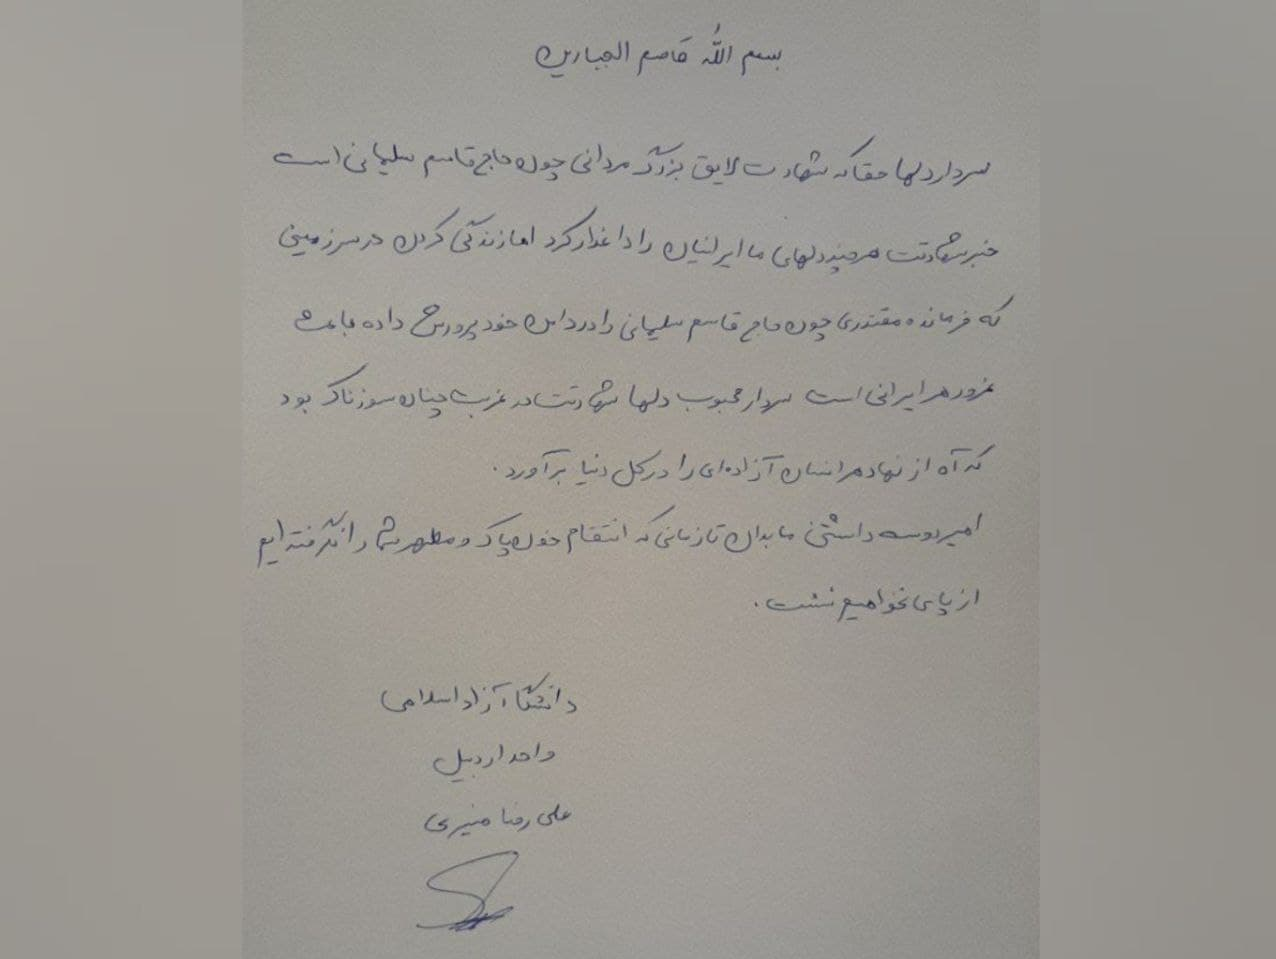 بسم الله قاصم الجبارین
سردار دلها حقا که شهادت لایق بزرگ مردانی چون حاج قاسم سلیمانی است
خبر شهادتت هر چند دلهای ما ایرانیان را داغدار کرد اما زندگی کردن در سرزمینی
که فرمانده مقتدری چون حاج قاسم سلیمانی را در دامن خود پرورش داده باعث
غرور هر ایرانی است سردار محبوب دلها شهادتت در غربت چنان سوزناک بود
که آه از نهاد هر انسان آزاده‌ای را در کل دنیا برآورد.
امیر دوست داشتنی ما بدان تا زمانی که انتقام خون پاک و مطهر شما را نگرفته ایم
از پای نخواهیم نشست.
دانشگاه آزاد اسلامی
واحد اردبیل
علی رضا منیری